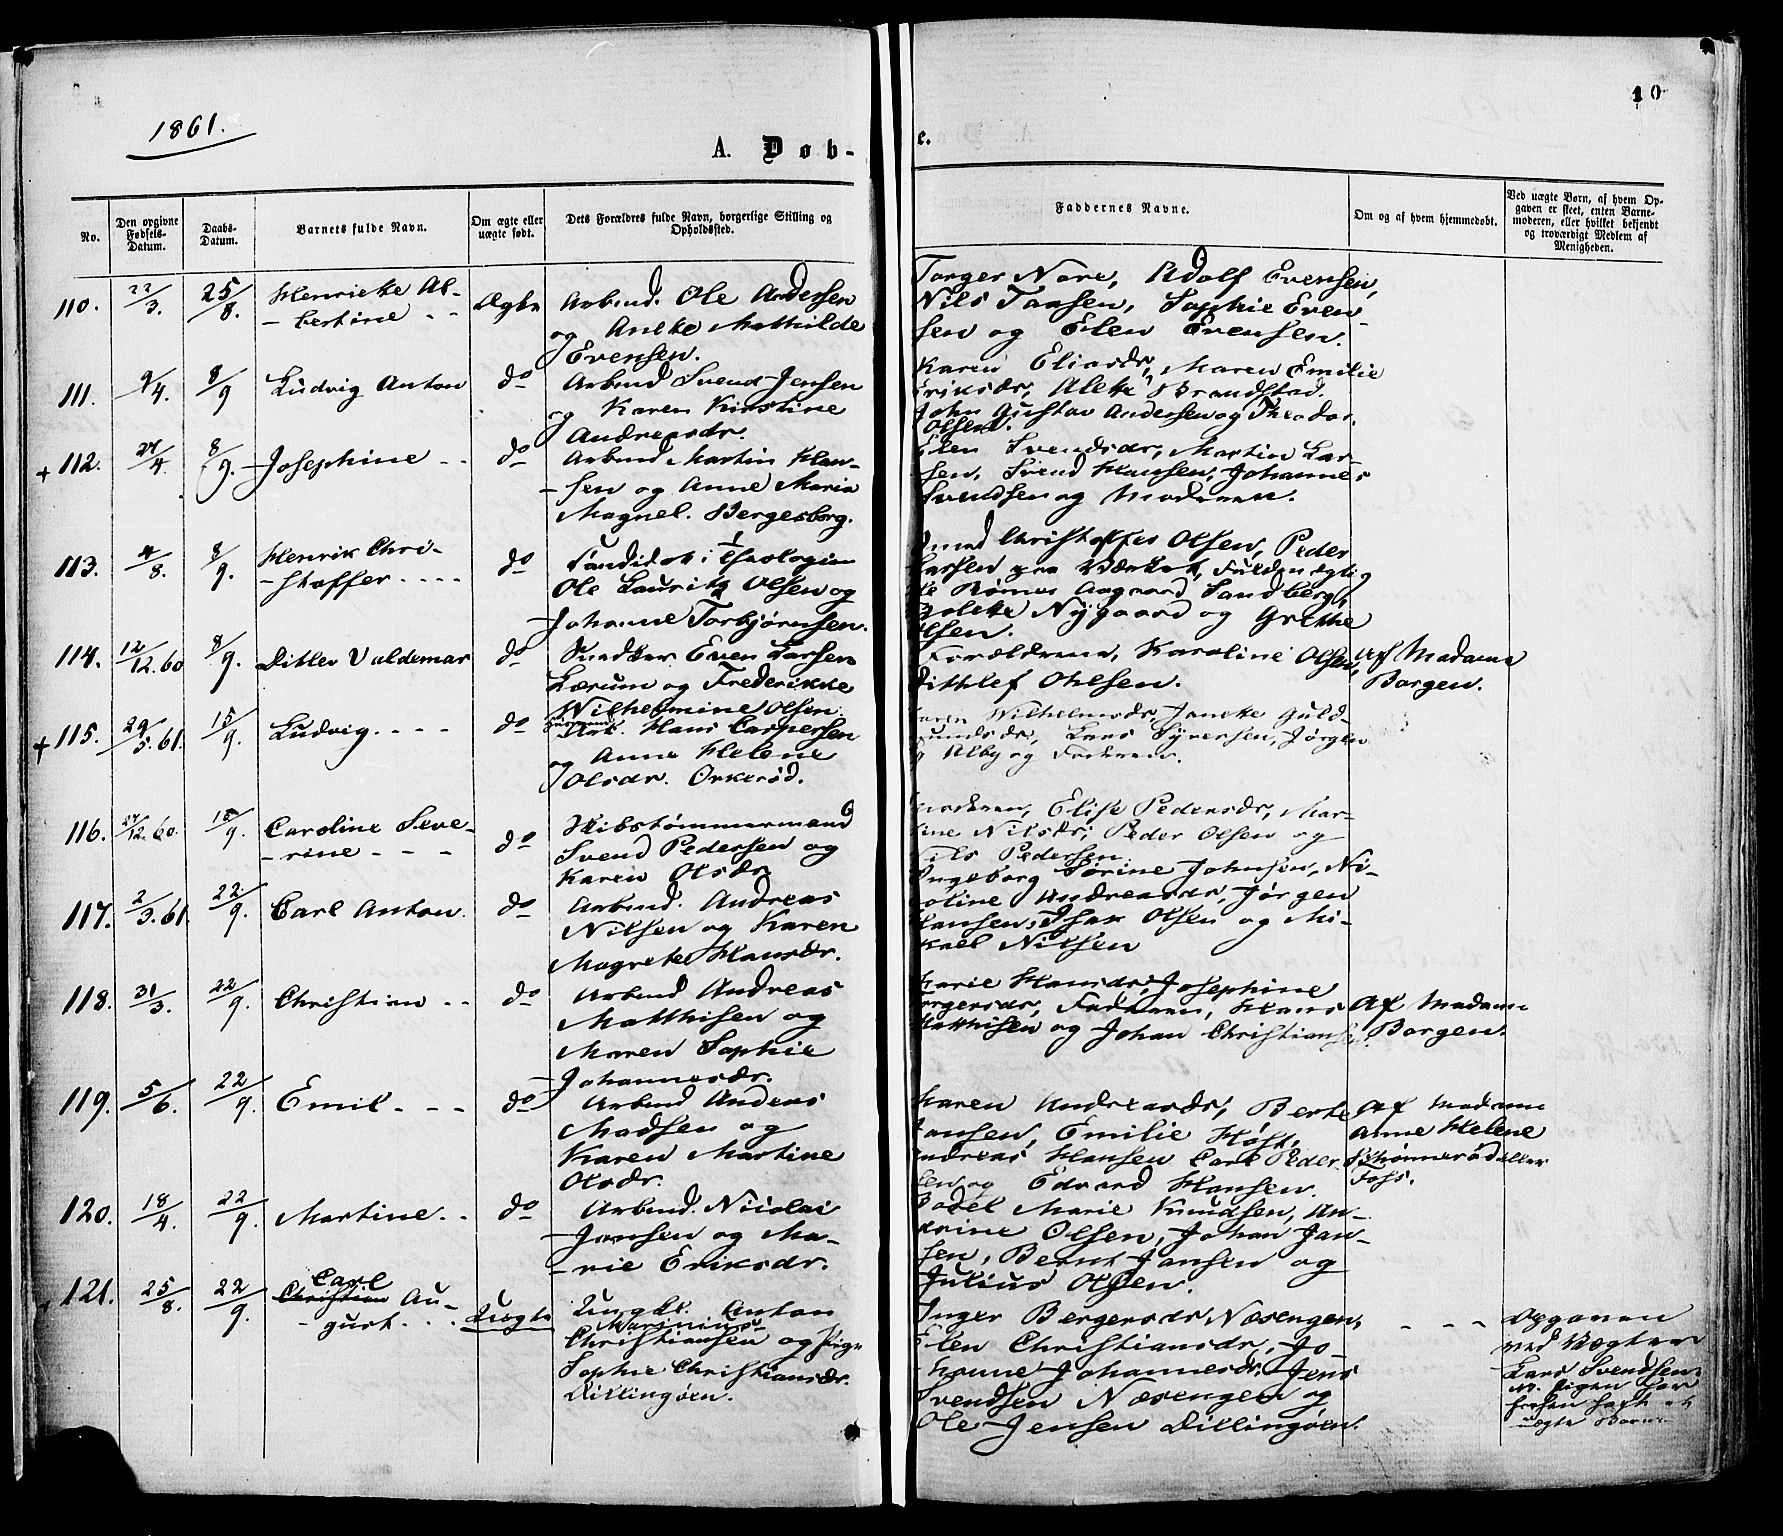 1861.
10
A. Døb-
e.
No.
Den opgivne Fødsels-Datum.
Daabs-Datum.
Barnets fulde Navn.
Om ægte eller uægte født.
Dets Forældres fulde Navn, borgerlige Stilling og Opholdssted.
Faddernes Navne.
Om og af hvem hjemmedøbt.
Ved uægte Børn, af hvem Opgaven er skeet, enten Barnemoderen, eller hvilket bekjendt og troværdigt Medlem af Menigheden.
110. 22/3. 25/8. Henrieke Al-
bertine - -
Ægte
Arbmd. Ole Andersen
og Aneke Mathilde
Evensen.
Torger Nore, Adolf Evensen,
Nils Tansen, Sophie Even-
sen og Elen Evensen.
111. 9/4. 8/9 Ludvig Anton do
Arbmd Svend Jensen
og Karen Kirstine
Andreasdr.
Karen Eliasdr, Maren Emilie
Eriksdr, Aleke Brandstad.
John Gustav Andersen og Theodor
Olsen.
+ 112. 27/4. 8/9. Josephine - - do
Arbmd Martin Han-
sen og Anne Maria
Magnel. Bergersborg.
Elen Svendsdr, Martin Lar-
sen, Svend Hansen, Johannes
Svendsen og Moderen.
113. 4/8. 8/9. Henrik Chri-
stoffer - - - -
do
Candidat i Theologien
Ole Lauritz Olsen og
Johanne Torbjørnsen.
Christoffer Olsen, Peder
Larsen paa Værket, Fuldmægtig
Rømer Aagaard Sandberg,
Nygaard og Grethe
Olsen.
114. 12/12.60 8/9. Ditlev Valdemar do
Snedker Even Larsen
Lærum og Frederikke
Wilhelmine Olsen.
Forældrene, Karoline Olsen,
Dithlef Ohlsen.
Af Madame
Borgen.
+ 115. 29/5.61. 15/9. Ludvig - - - - do
Hans Caspersen
og Anne Helene
Olsdr. Orkerød.
Karen Wilhelmsdr, Janeke Guld-
mundsdr, Lars Syversen, Jørgen
Alby og Faderen.
116. 27/12.60. 15/9. Caroline Seve-
rine - - -
do
Skibstømmermand
Svend Pedersen og
Karen Olsdr
Moderen, Elise Pedersdr, Mar-
tine Nilsdr, Peder Olsen og
Nils Pedersen.
117. 2/3.61. 22/9. Carl Anton. do
Arbmd. Andreas
Nilsen og Karen
Magrete Hansdr.
Ingeborg Sørine Johnsen, Ni-
koline Andreasdr, Jørgen
Hansen, Isak Olsen og Mi-
kael Nilsen
118. 31/3. 22/9. Christian - - do
Arbmd Andreas
Matthisen og
Maren Sophie
Johannesdr.
Marie Hansdr, Josephine
Torgersdr, Faderen, Hans
Matthisen og Johan Christians
Af Madame
Borgen.
119. 5/6. 22/9. Emil - - - do
Arbmd Anders
Madsen og
Karen Martine
Olsdr.
Karen Andreasdr, Berte
Jansen, Emilie Høst,
Andreas Hansen Carl Peder-
sen og Edvard Hansen.
Af Madame
Anne Helene
Skønnerød eller
Foss.
120. 18/4. 22/9. Martine. - do
Arbmd. Nicolai
Jansen og Ma-
rie Eriksdr.
Bodel Marie Knudsen, An-
drine Olsen, Johan Jan-
sen, Bernt Jansen og
Julius Olsen.
121. 25/8. 22/9. Carl
Christian Au-
gust. - - -
Uægte
Ungkl. Anton
Marinius
Christiansen og Pige
Sophie Christiansdr.
Dillingøen.
Inger Bergersdr Næsengen,
Elen Christiansdr, Jo-
hanne Johannesdr, Jens
Svendsen Næsengen og
Ole Jensen Dillingøen.
- - -
Opgaven
ved Vægter
Lars Svendsen.
NB. Pigen har
forhen havt et
uægte Barn.